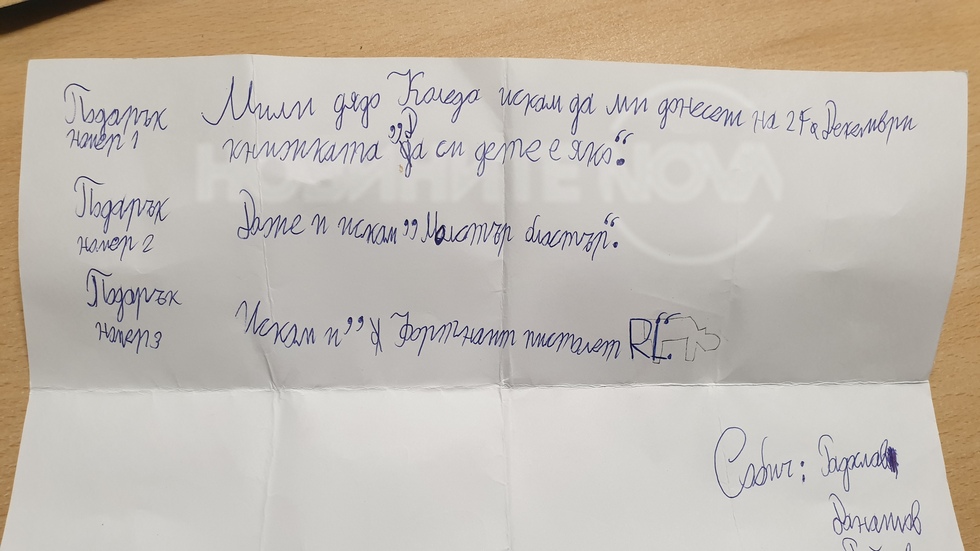 Подарък номер 1
Мили дядо Коледа искам да ми донесеш на 24 Декември
книжката „Да си дете е яко“.
Подарък номер 2
Даже и искам „Мостър бластър“.
Подарък номер 3
Искам и „Фортнайт пистолет RL“.
НОВИНИТЕ NOVA
С обич: Радослав